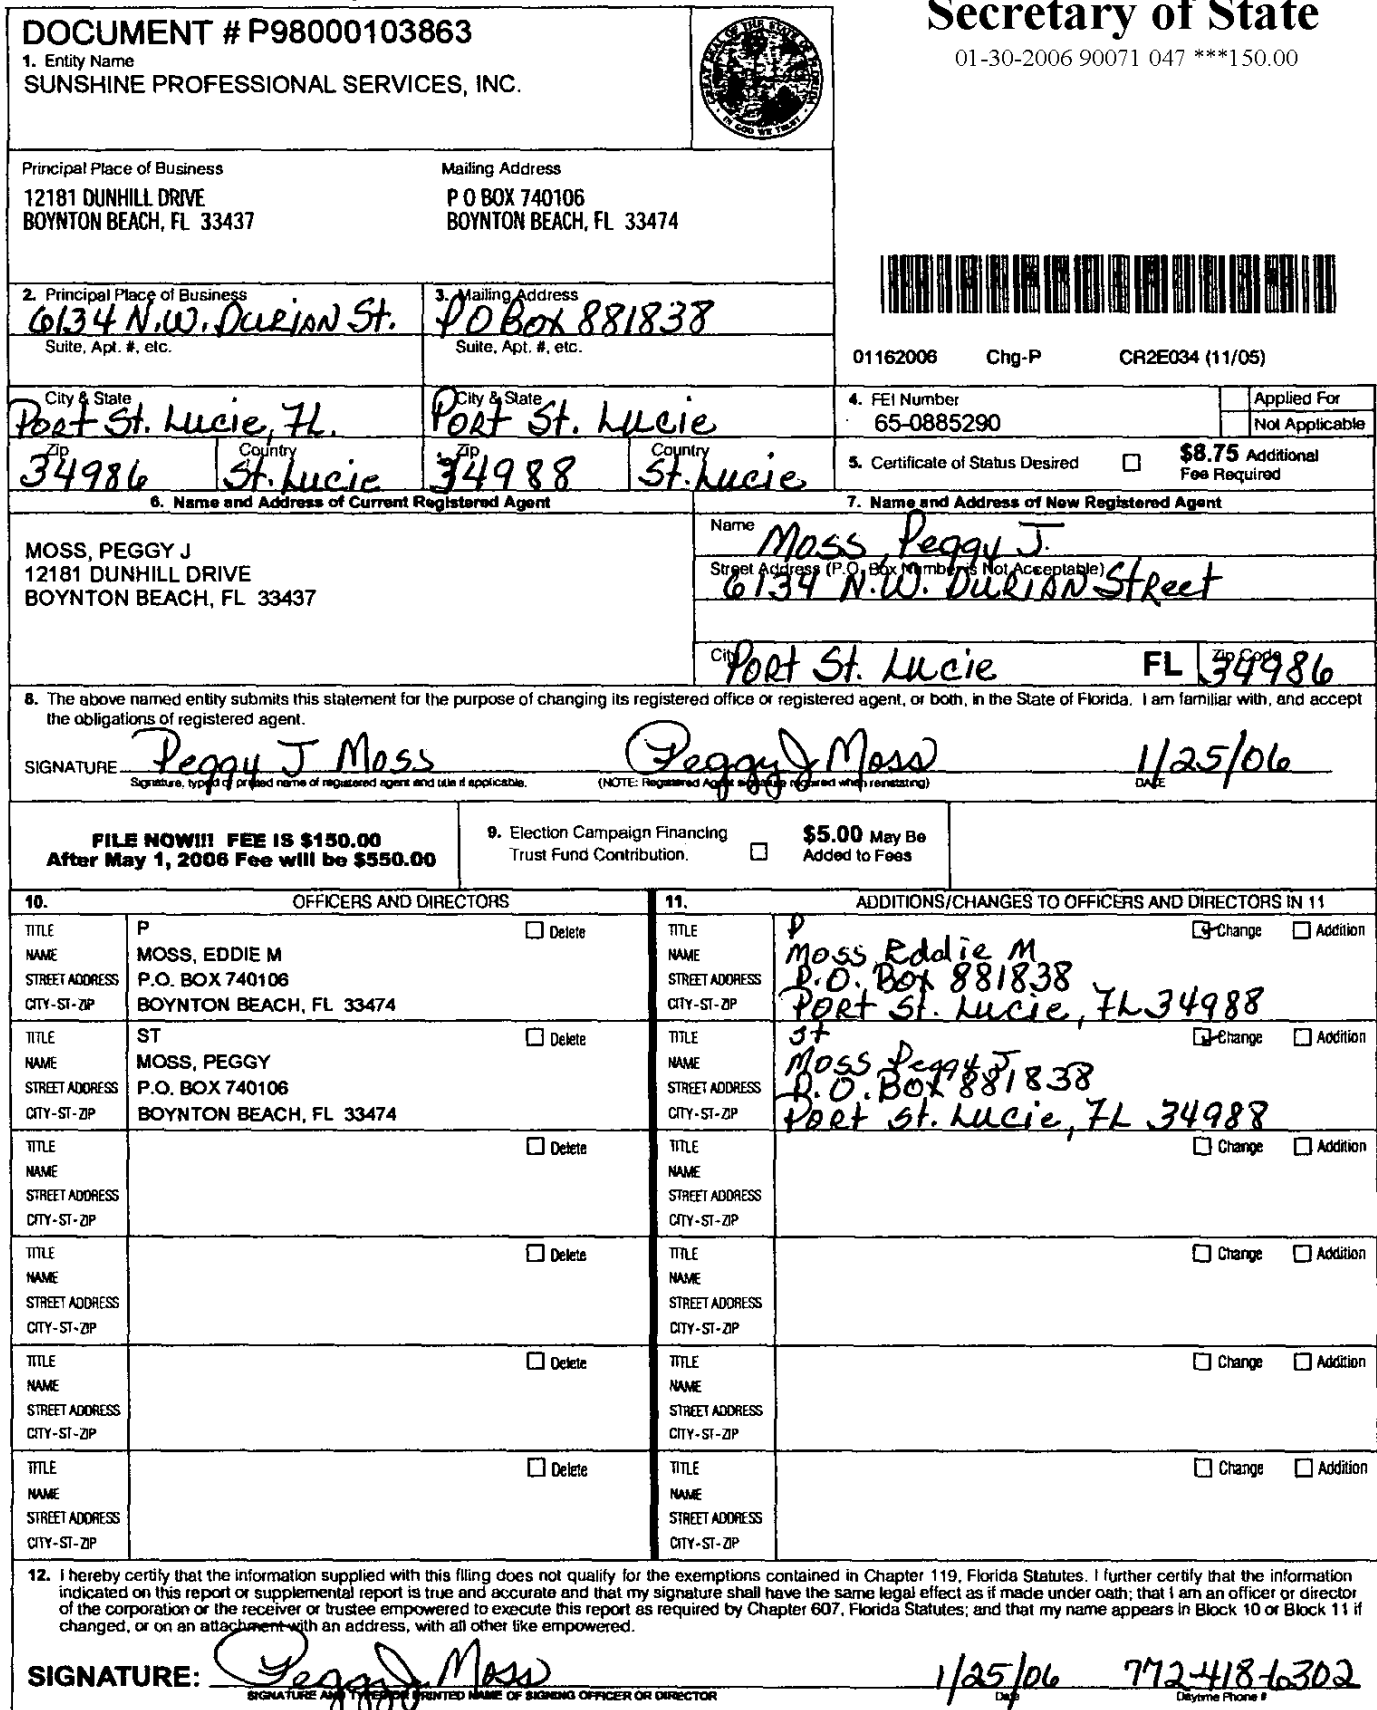 Secretary of State
01-30-2006 90071 047 ***150.00
DOCUMENT # P98000103863
1. Entity Name
SUNSHINE PROFESSIONAL SERVICES, INC.
GREAT SEAL OF THE STATE OF FLORIDA
IN GOD WE TRUST
Principal Place of Business
12181 DUNHILL DRIVE
BOYNTON BEACH, FL 33437
Mailing Address
P O BOX 740106
BOYNTON BEACH, FL 33474
2. Principal Place of Business
6134 N.W. DURIAN St.
Suite, Apt. #, etc.
City & State
Port St. Lucie, FL.
Zip
34986
Country
St. Lucie
3. Mailing Address
PO Box 881838
Suite, Apt. #, etc.
City & State
Port St. Lucie
Zip
34988
Country
St. Lucie
01162006 Chg-P CR2E034 (11/05)
4. FEI Number
65-0885290
Applied For
Not Applicable
5. Certificate of Status Desired
$8.75 Additional
Fee Required
6. Name and Address of Current Registered Agent
MOSS, PEGGY J
12181 DUNHILL DRIVE
BOYNTON BEACH, FL 33437
7. Name and Address of New Registered Agent
Name
Moss, Peggy J.
Street Address (P.O. Box Number is Not Acceptable)
6134 N.W. DURIAN Street
City
Port St. Lucie
FL
Zip Code
34986
8. The above named entity submits this statement for the purpose of changing its registered office or registered agent, or both, in the State of Florida. I am familiar with, and accept
the obligations of registered agent.
SIGNATURE Peggy J Moss Peggy J Moss 1/25/06
Signature, typed or printed name of registered agent and title if applicable. (NOTE: Registered Agent signature required when reinstating) DATE
FILE NOW!!! FEE IS $150.00
After May 1, 2006 Fee will be $550.00
9. Election Campaign Financing
Trust Fund Contribution.
$5.00 May Be
Added to Fees
10. OFFICERS AND DIRECTORS
TITLE P Delete
NAME MOSS, EDDIE M
STREET ADDRESS P.O. BOX 740106
CITY-ST-ZIP BOYNTON BEACH, FL 33474
TITLE ST Delete
NAME MOSS, PEGGY
STREET ADDRESS P.O. BOX 740106
CITY-ST-ZIP BOYNTON BEACH, FL 33474
TITLE Delete
NAME
STREET ADDRESS
CITY-ST-ZIP
TITLE Delete
NAME
STREET ADDRESS
CITY-ST-ZIP
TITLE Delete
NAME
STREET ADDRESS
CITY-ST-ZIP
TITLE Delete
NAME
STREET ADDRESS
CITY-ST-ZIP
11. ADDITIONS/CHANGES TO OFFICERS AND DIRECTORS IN 11
TITLE P Change Addition
NAME Moss, Eddie M
STREET ADDRESS P.O. Box 881838
CITY-ST-ZIP Port St. Lucie, FL 34988
TITLE St Change Addition
NAME Moss Peggy J
STREET ADDRESS P.O. Box 881838
CITY-ST-ZIP Port St. Lucie, FL 34988
TITLE Change Addition
NAME
STREET ADDRESS
CITY-ST-ZIP
TITLE Change Addition
NAME
STREET ADDRESS
CITY-ST-ZIP
TITLE Change Addition
NAME
STREET ADDRESS
CITY-ST-ZIP
TITLE Change Addition
NAME
STREET ADDRESS
CITY-ST-ZIP
12. I hereby certify that the information supplied with this filing does not qualify for the exemptions contained in Chapter 119, Florida Statutes. I further certify that the information
indicated on this report or supplemental report is true and accurate and that my signature shall have the same legal effect as if made under oath; that I am an officer or director
of the corporation or the receiver or trustee empowered to execute this report as required by Chapter 607, Florida Statutes; and that my name appears in Block 10 or Block 11 if
changed, or on an attachment with an address, with all other like empowered.
SIGNATURE: Peggy J. Moss 1/25/06 772-418-6302
SIGNATURE AND TYPED OR PRINTED NAME OF SIGNING OFFICER OR DIRECTOR Date Daytime Phone #